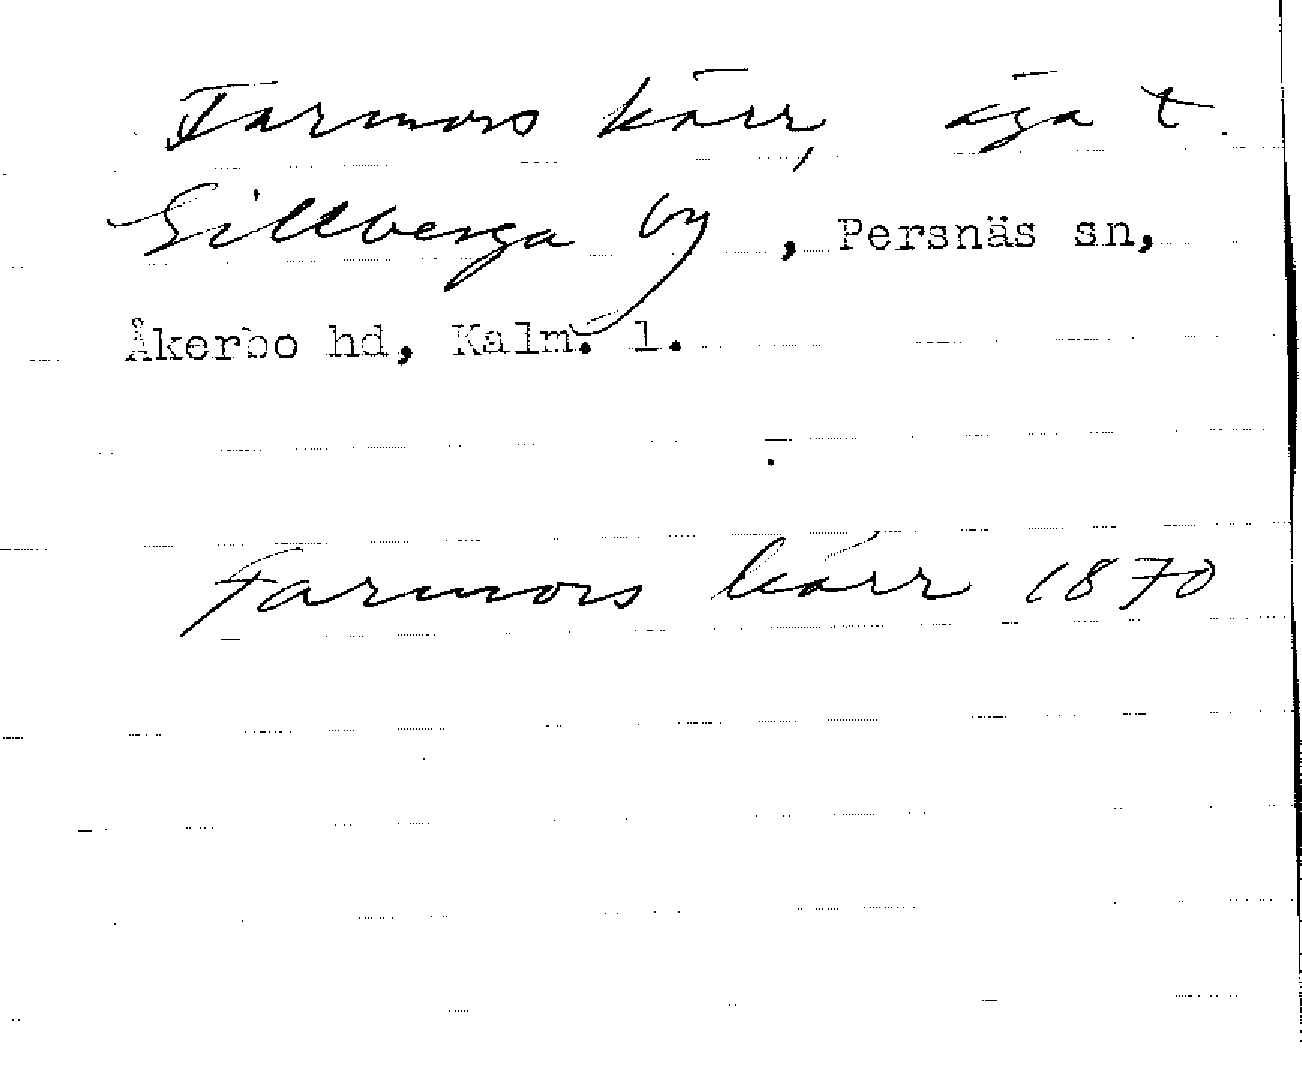 Farmors kärr, äga t.
Gillberga by, Persnäs sn,
Åkerbo hd, Kalm. l.
Farmors kärr 1870